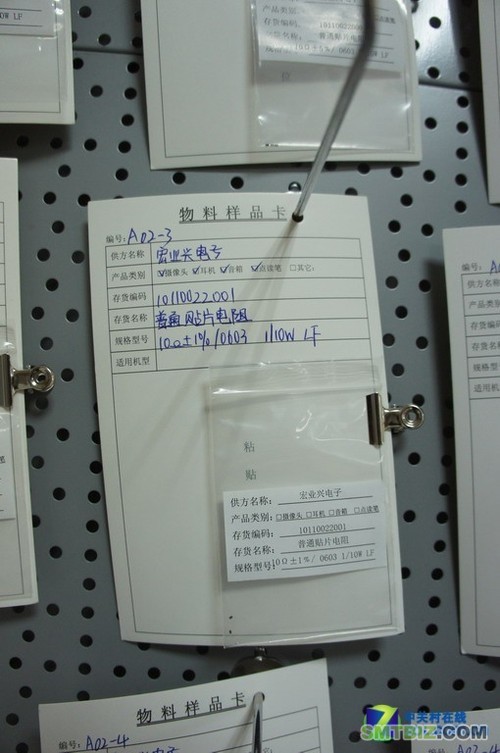 1/10W LF
产品类别
存货编码
10110022001
存货名称:
普通贴片电阻
规格型号
10Ω±5% / 0603 1/10W LF
物料样品卡
编号: A02-3
供方名称 宏业兴电子
产品类别 ☑摄像头 ☑耳机 ☑音箱 ☑点读笔 □其它:
存货编码 10110022001
存货名称 普通贴片电阻
规格型号 10Ω±1%/0603 1/10W LF
适用机型
粘
贴
供方名称: 宏业兴电子
产品类别: □摄像头 □耳机 □音箱 □点读笔
存货编码: 10110022001
存货名称: 普通贴片电阻
规格型号: 10Ω±1%/ 0603 1/10W LF
编号:
供方名称
产品类别
存货编码
存货名称
规格型号
适用机型
物料样品卡
编号: A02-4
中关村在线
SMTBIZ.COM